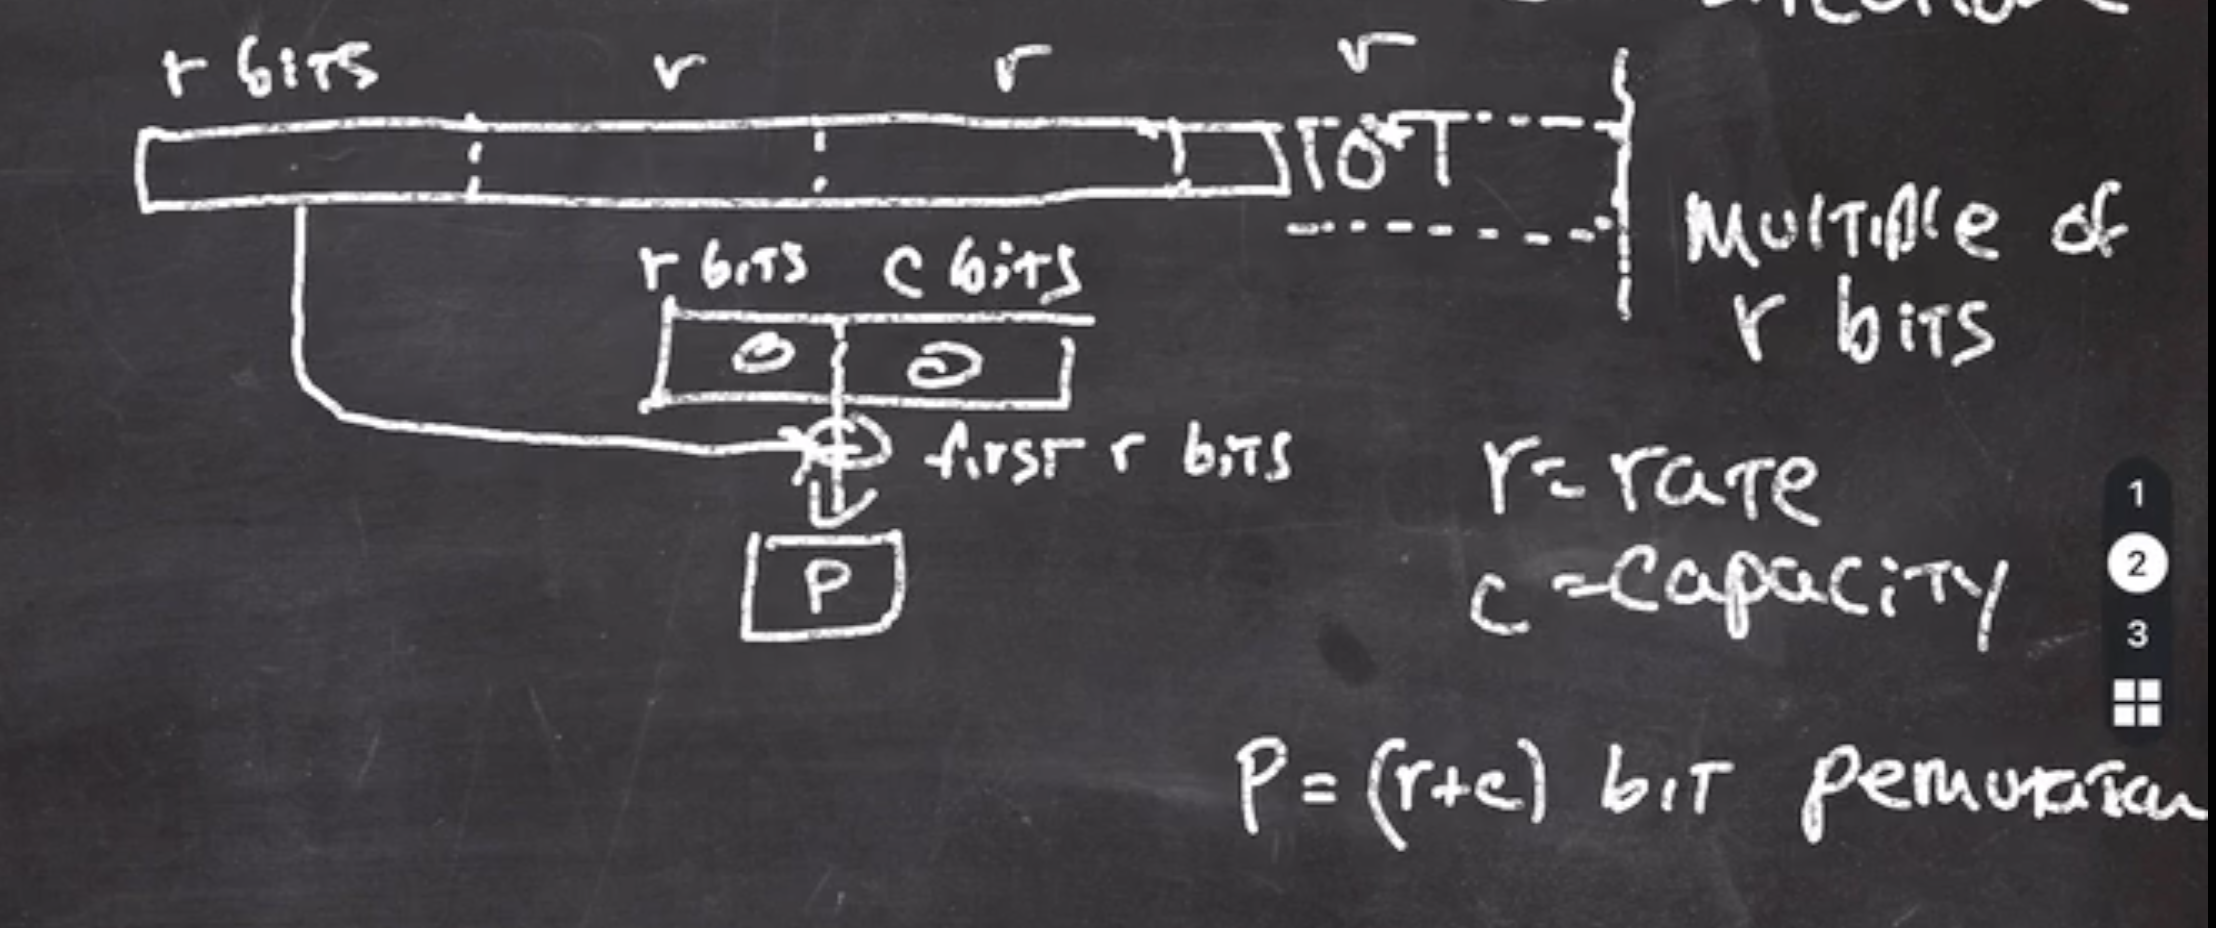 r bits r r r
10*1
Multiple of
r bits
r bits c bits
0 0
first r bits
P
r = rate
c = capacity
1
2
3
P = (r+c) bit permutation